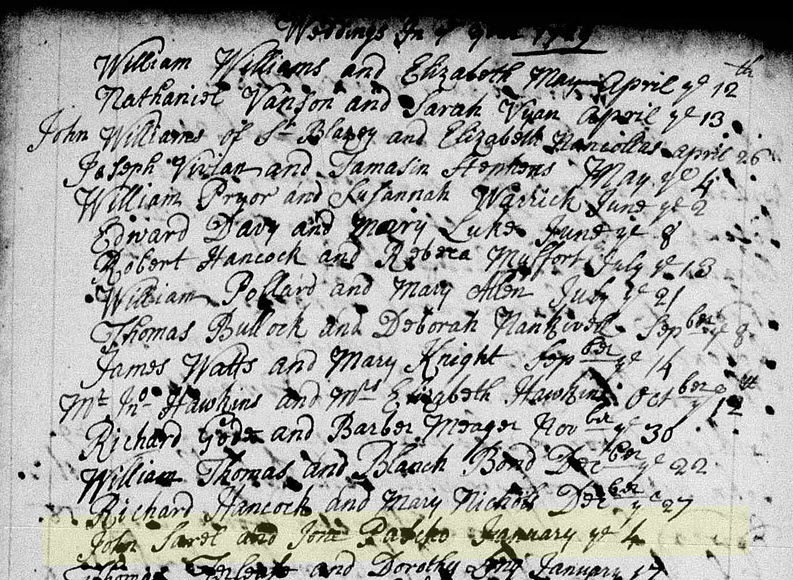 Weddings In ye year 1729
William Williams and Elizabeth May April ye 12th
Nathaniel Vanson and Sarah Vyan April ye 13
John Williams of St Blazey and Elizabeth Nancollas April 26
Joseph Vivian and Tamasin Stephens May ye 4
William Pryor and Susannah Warrick June ye 2
Edward Davy and Mary Luke June ye 8
Robert Hancock and Rebeca July ye 13
William Pollard and Mary Allen July ye 21
Thomas Bullock and Deborah Nankivell Sepber ye 8
James Watts and Mary Knight Sepber ye 14
Mr Jno Hawkins and Mrs Elizabeth Hawkins Octber ye 12th
Richard and Barber Meager Novber ye 30
William Thomas and Blanch Bond Decber ye 22
Richard Hancock and Mary Nicholls Decber ye 27
John and Jone January ye 4
Thomas and Dorothy January 17